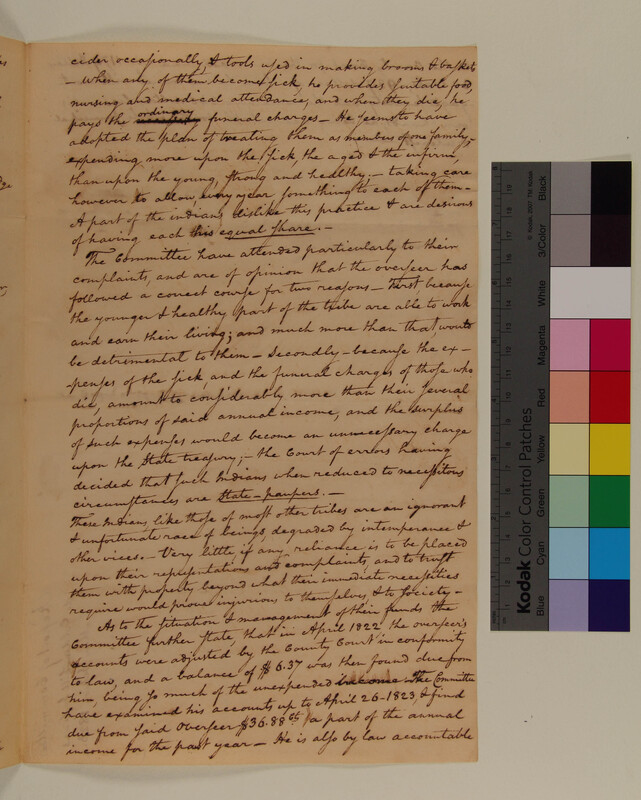 cider occasionally, & tools used in making brooms & baskets
— when any of them become sick, he provides suitable food,
nursing and medical attendance, and when they die, he
pays the ordinary funeral charges — He seems to have
adopted the plan of treating them as members of one family,
expending more upon the sick, the aged & the infirm,
than upon the young, strong and healthy — taking care
however to allow every year something to each of them —
A part of the indians dislike this practice & are desirous
of having each his equal share. —
The Committee have attended particularly to their
complaints, and are of opinion that the overseer has
followed a correct course for two reasons — First because
the younger & healthy part of the tribe are able to work
and earn their living; and much more than that would
be detrimental to them — Secondly — because the ex-
penses of the sick, and the funeral charges of those who
die, amount to considerably more than their several
proportions of said annual income, and the surplus
of such expenses would become an unnecessary charge
upon the State treasury; — the Court of errors having
decided that such Indians when reduced to necessitous
circumstances are State-paupers. —
These Indians, like those of most other tribes are an ignorant
& unfortunate race of beings, degraded by intemperance &
other vices. — Very little if any reliance is to be placed
upon their representations and complaints, and to trust
them with property beyond what their immediate necessities
require would prove injurious to themselves, & to Society —
As to the situation & management of their funds the
Committee further State, that in April 1822 the overseer's
accounts were adjusted by the County Court in conformity
to law, and a balance of $6.37 was then found due from
him, being so much of the unexpended income The Committee
have examined his accounts up to April 26–1823, & find
due from said Overseer $36.88 cts a part of the annual
income for the past year — He is also by law accountable
Kodak Color Control Patches
© Kodak, 2007
Blue
Cyan
Green
Yellow
Red
Magenta
White
3/Color
Black